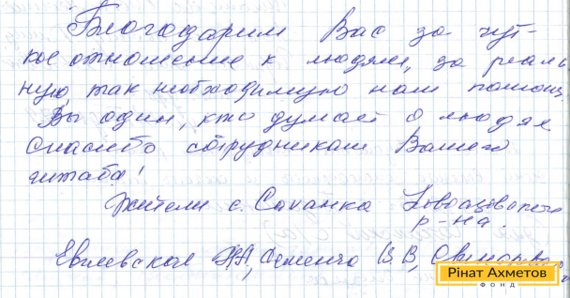 Благодарим Вас за чут-
кое отношение к людям, за реаль
ную, так необходимую нам помощь.
Вы один, кто думает о людях
Спасибо сотрудникам Вашего
штаба!
Жители с. Саханка Новоазовского
р-на
В.В.,
Рінат Ахметов
ФОНД